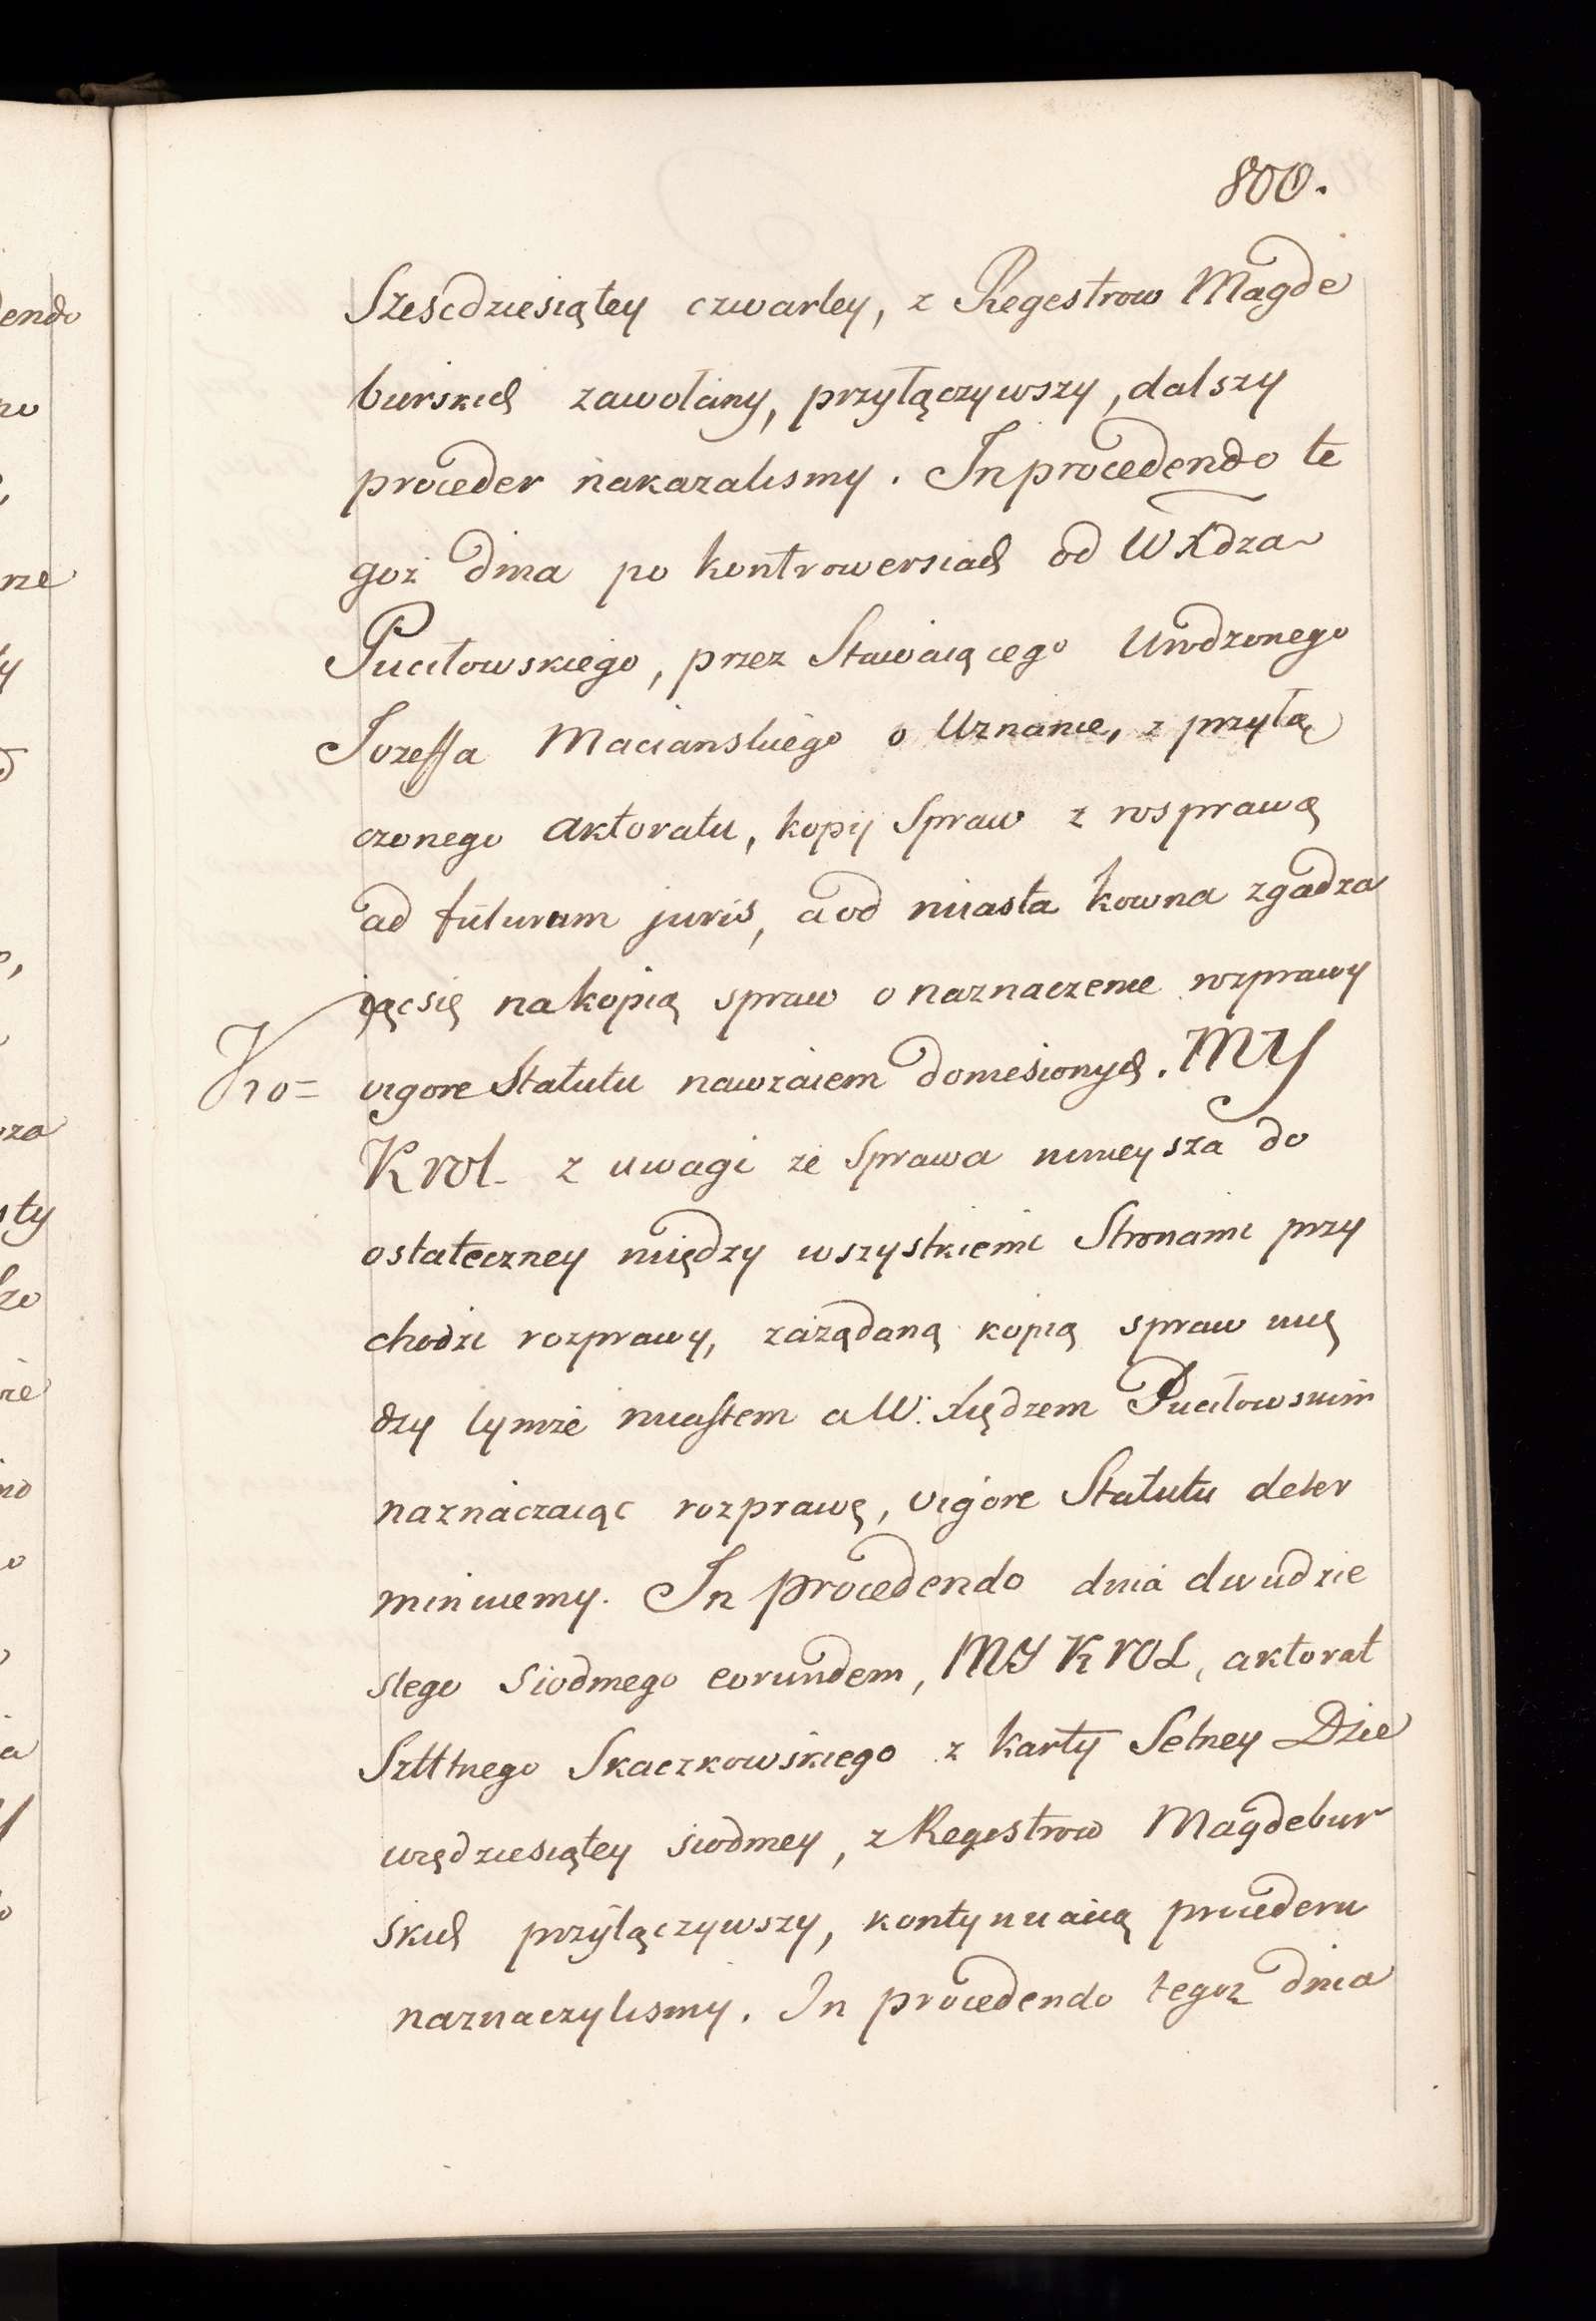 800.
Szescdziesiątey czwartey, z Regestrow Magde
burskich zawołany, przyłączywszy, dalszy
proceder nakazalismy. In procedendo te
goż dnia po kontrowersiach od WXdza
Puciłowskiego, przez Stawaiącego Urodzonego
Jozeffa Macianskiego o Uznanie, z przyłą
czonego aktoratu, kopij Spraw z rosprawą
ad futuram juris, a od miasta Kowna zgadza
iąc się na kopią spraw o naznaczenie rozprawy
vigore Statutu nawzaiem doniesionych. MY
Krol z uwagi że Sprawa ninieysza do
ostateczney między wszystkiemi Stronami przy
chodzi rozprawy, zażądaną kopią spraw mię
dzy tymże miastem a W: Xiędzem Puciłowskim
naznaczaiąc rozprawę, vigore Statutu deter
miniuemy. In procedendo dnia dwudzie
stego Siodmego eorundem, MY KROL, aktorat
Szlttnego Skaczkowskiego z karty Setney Dzie
więdziesiątey siodmey, z Regestrow Magdebur
skich przyłączywszy, kontynuaią procederu
naznaczylismy. In procedendo tegoż dnia